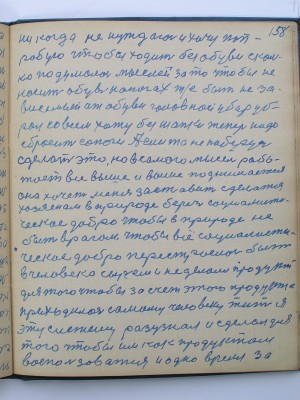 158
никогда не нуждался и хочу поп-
робую чтобы ходить без обуви сколь-
ко подумолом мыслей за то чтобы не
носить обувь на ногах то же быть не за-
висемый от обуви головной убор уб-
рал совсем хожу без шапки теперь надо
сбросить сапоги А если то не побуду
сделать это, но в самого мысел рабо-
тает все выше и выше поднимается
она хочет меня заставить сделатся
хозяеном в природе беречь социалисти-
ческое добро чтобы в природе не
быть врагом чтобы всё социалисти-
ческое добро перестроется быть
в человека слугаем и не делаем продукт
для того чтобы за счет этого продукта
приходилося самому человеку питатся
эту систему разузнал и сделал для
того чтобы им как продуктом
воспользоватся и одно время за